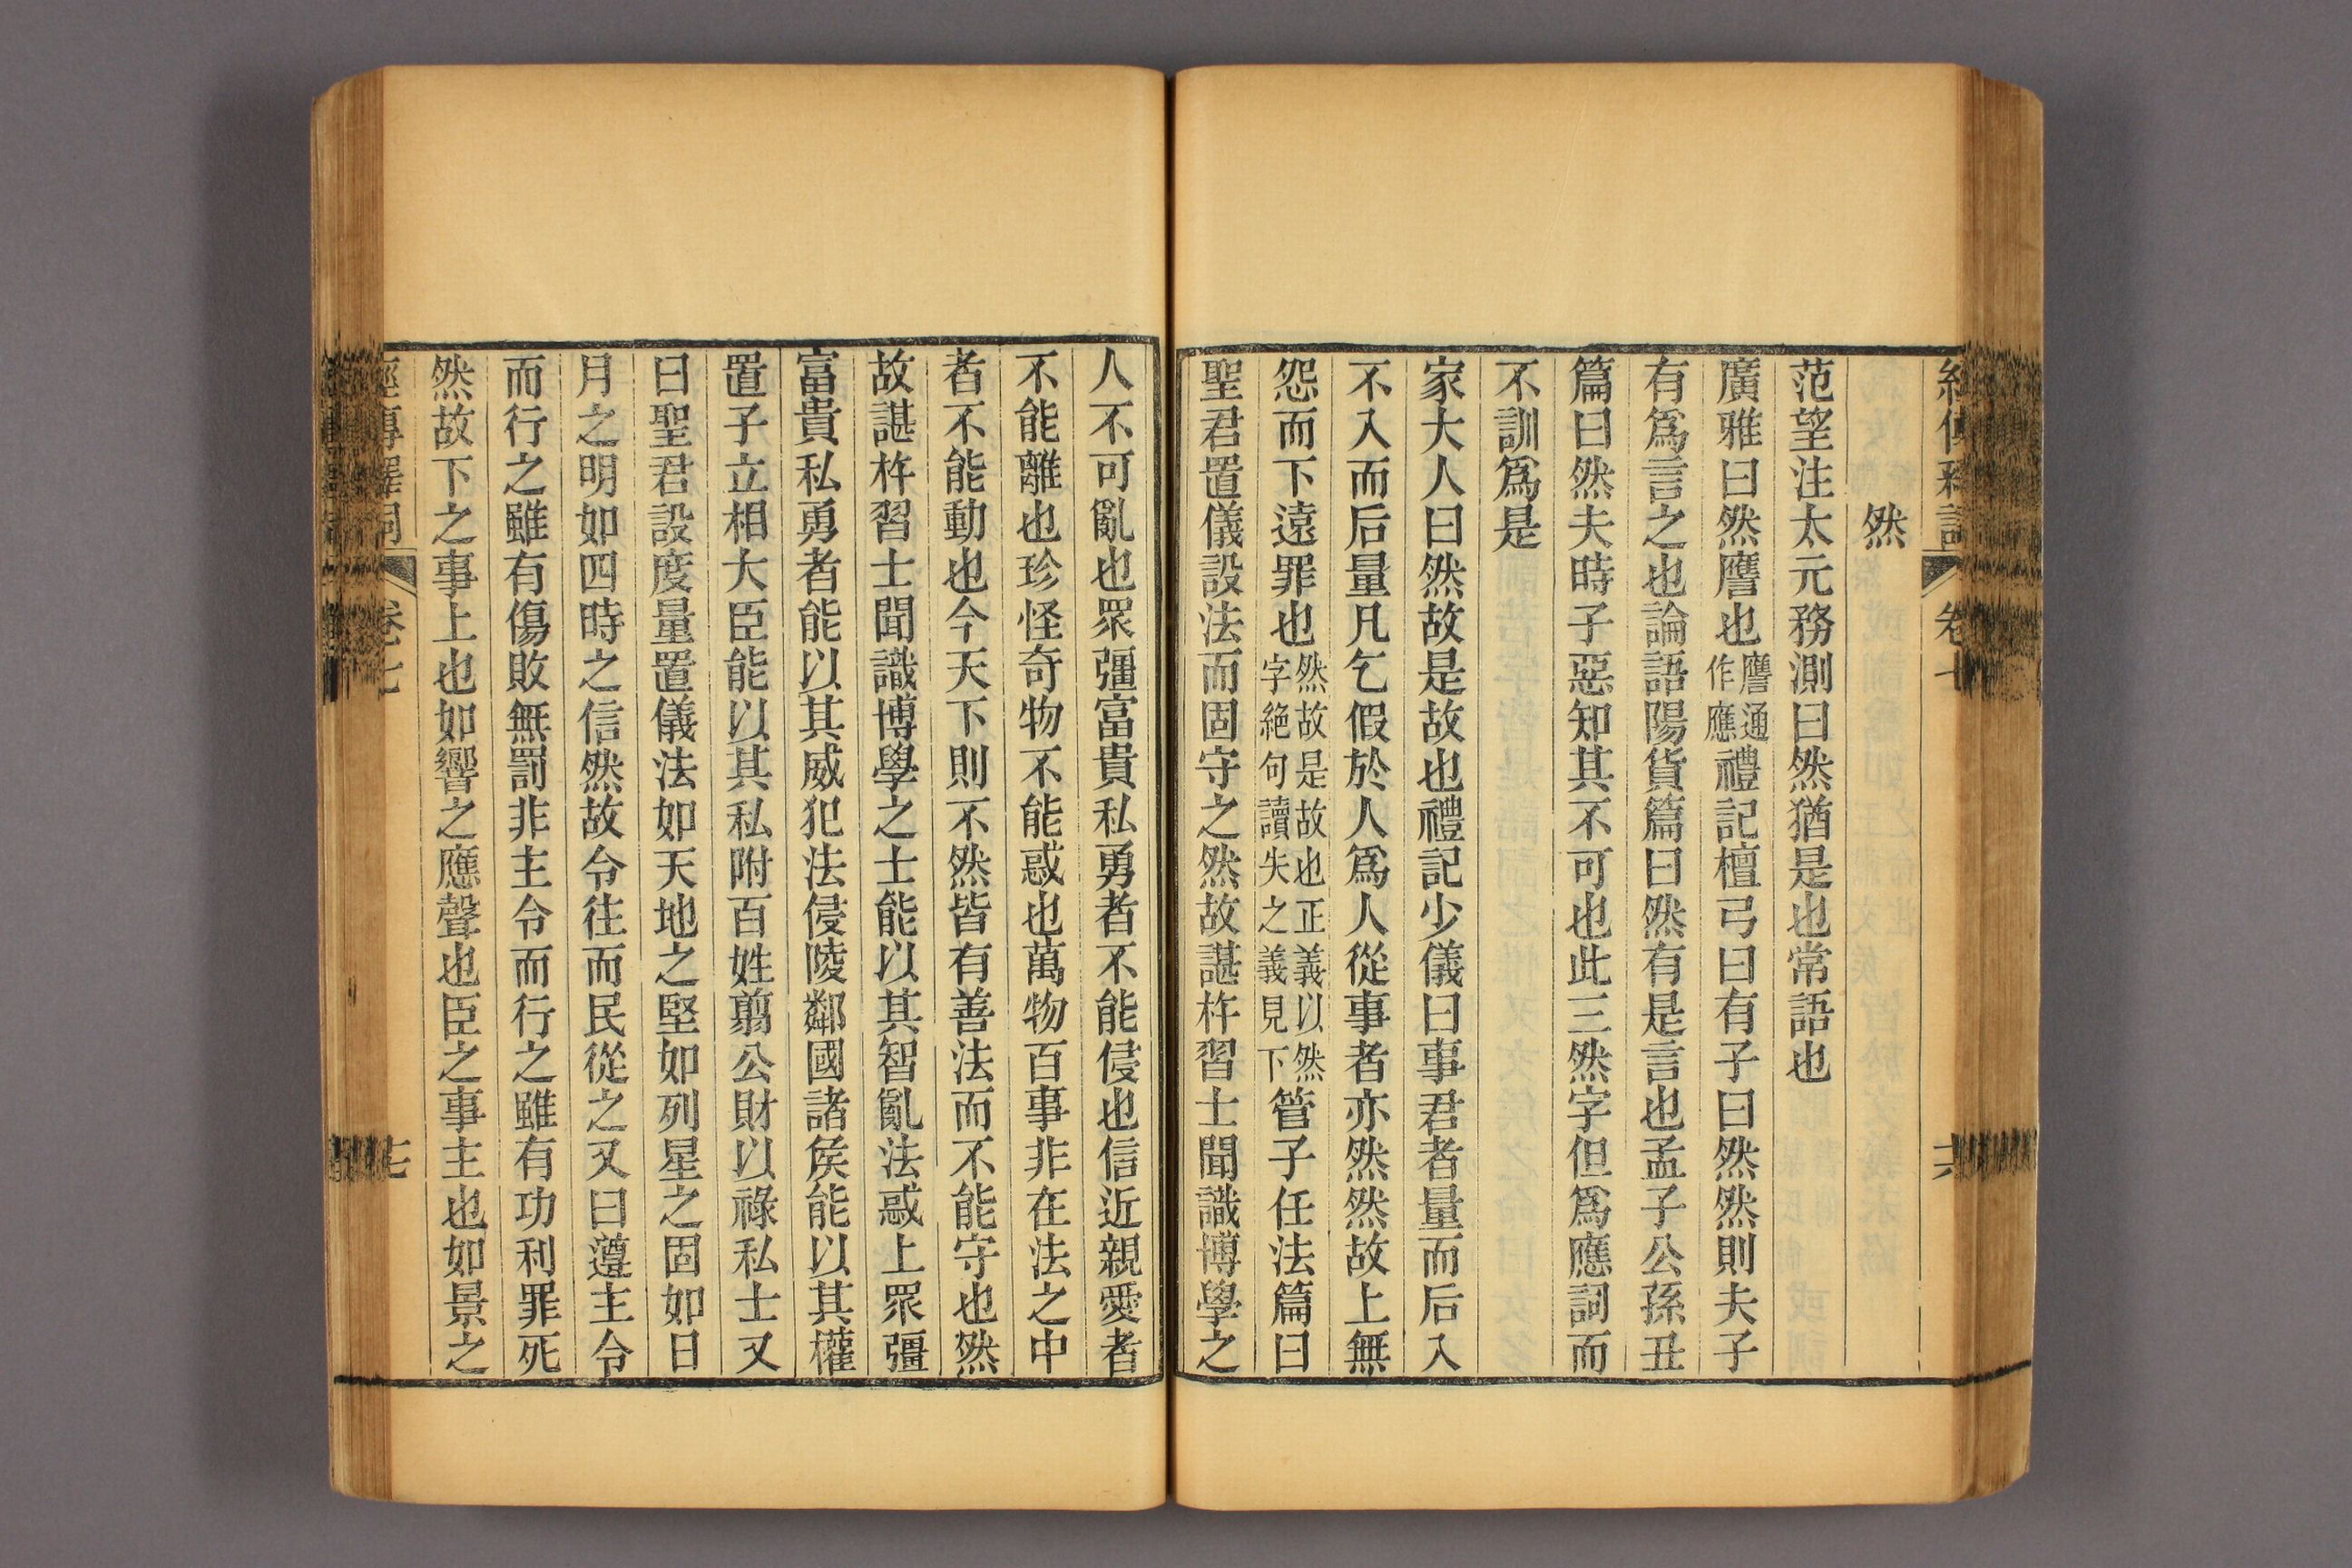 然
范望注太元務測曰然猶是也常語也
廣雅曰然譍也譍通作應禮記檀弓曰有子曰然然則夫子
有爲言之也論語陽貨篇曰然有是言也孟子公孫丑
篇曰然夫時子惡知其不可也此三然字但爲應詞而
不訓爲是
家大人曰然故是故也禮記少儀曰事君者量而后入
不入而后量凡乞假於人爲人從事者亦然然故上無
怨而下遠罪也然故是故也正義以然字絕句讀失之義見下管子任法篇曰
聖君置儀設法而固守之然故諶杵習士聞識博學之
人不可亂也眾彊富貴私勇者不能侵也信近親愛者
不能離也珍怪奇物不能惑也萬物百事非在法之中
者不能動也今天下則不然皆有善法而不能守也然
故諶杵習士聞識博學之士能以其智亂法惑上眾彊
富貴私勇者能以其威犯法侵陵鄰國諸矦能以其權
置子立相大臣能以其私附百姓翦公財以祿私士又
曰聖君設度量置儀法如天地之堅如列星之固如日
月之明如四時之信然故令往而民從之又曰遵主令
而行之雖有傷敗無罰非主令而行之雖有功利罪死
然故下之事上也如響之應聲也臣之事主也如景之
經傳釋詞 卷七